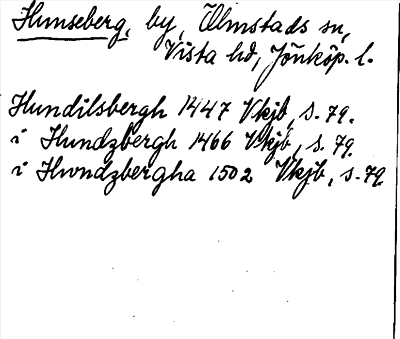 Hunseberg, by, Ölmstads sn,
Vista hd, Jönköp. l.
Hundilsbergh 1447 Vkjb, s. 79.
i Hundzbergh 1466 Vkjb, s. 79.
i Hwndzbergha 1502 Vkjb, s. 79.